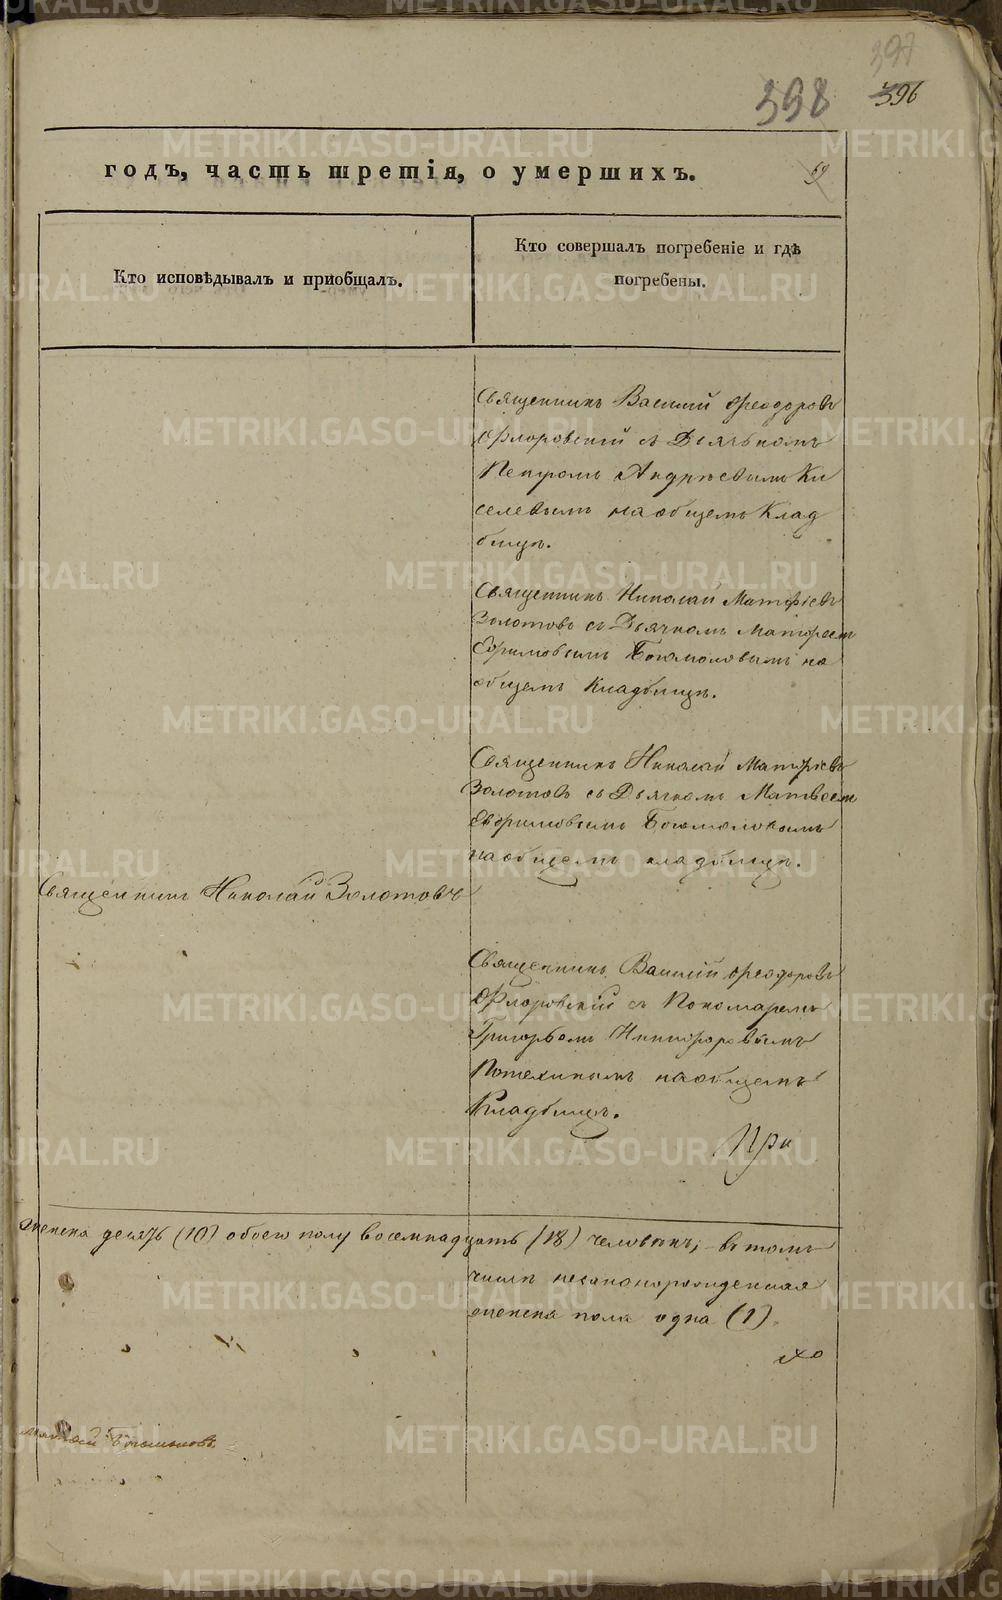 397
398 396
годъ, часть третія, о умершихъ.
69
Кто исповѣдывалъ и приобщалъ.
Кто совершалъ погребеніе и гдѣ
погребены.
Священникъ Василій Ѳеодоровъ
Флоровскій съ Дьячкомъ
Петромъ Андрѣевымъ Ки
селевымъ на общемъ Клад
бищѣ.
Священникъ Николай Матфіевъ
Золотовъ съ Дьячкомъ Матфеем
Ефимовымъ Богомоловымъ на
общемъ Кладбищѣ.
Священникъ Николай Матфіевъ
Золотовъ съ Дьячкомъ Матвеем
Евфимовымъ Богомоловымъ
на общемъ кладбищѣ.
Священникъ Николай Золотовъ
Священникъ Василій Ѳеодоровъ
Флоровскій съ Пономаремъ
Григорьемъ Никифоровымъ
Потехинымъ на общемъ
Кладбищѣ.
При
женска десять (10) обоего полу восемнадцать (18) человѣкъ, въ томъ
числѣ незаконорожденная
женска пола одна (1).
Богомоловъ
METRIKI.GASO-URAL.RU